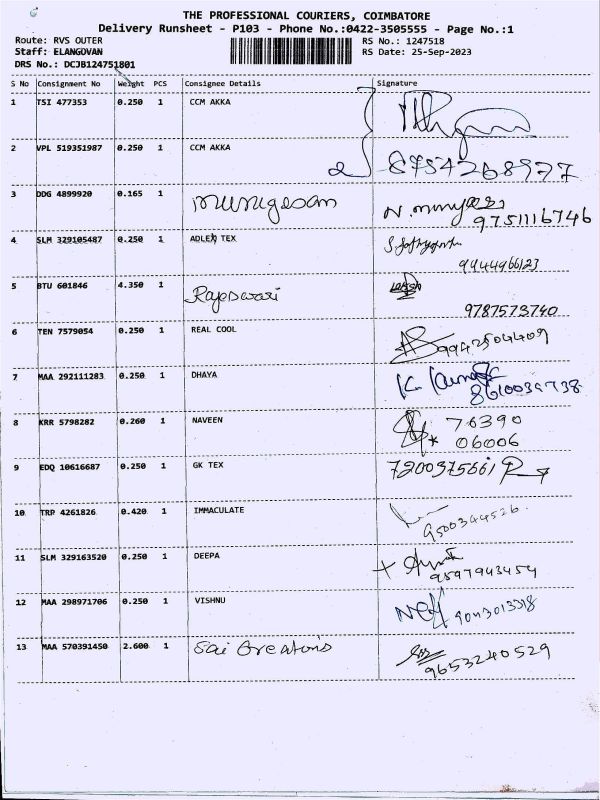 THE PROFESSIONAL COURIERS, COIMBATORE
Delivery Runsheet - P103 - Phone No.:0422-3505555 - Page No.:1
Route: RVS OUTER RS No.: 1247518
Staff: ELANGOVAN RS Date: 25-Sep-2023
DRS No.: DCJB124751801
S No Consignment No Weight PCS Consignee Details Signature
1 TSI 477353 0.250 1 CCM AKKA
2 VPL 519351987 0.250 1 CCM AKKA 2 8754268977
3 DDG 4899920 0.165 1 murugesan 9751116746
4 SLM 329105487 0.250 1 ADLER TEX 9944966123
5 BTU 601846 4.350 1 Rajeswari 9787573740
6 TEN 7579054 0.250 1 REAL COOL 9942504409
7 MAA 292111283 0.250 1 DHAYA
8 KRR 5798282 0.260 1 NAVEEN 76390
06006
9 EDQ 10616687 0.250 1 GK TEX 7200375661
10 TRP 4261826 0.420 1 IMMACULATE 9500344526
11 SLM 329163520 0.250 1 DEEPA 9597943454
12 MAA 298971706 0.250 1 VISHNU
13 MAA 570391450 2.600 1 Sai Creations 9653240529